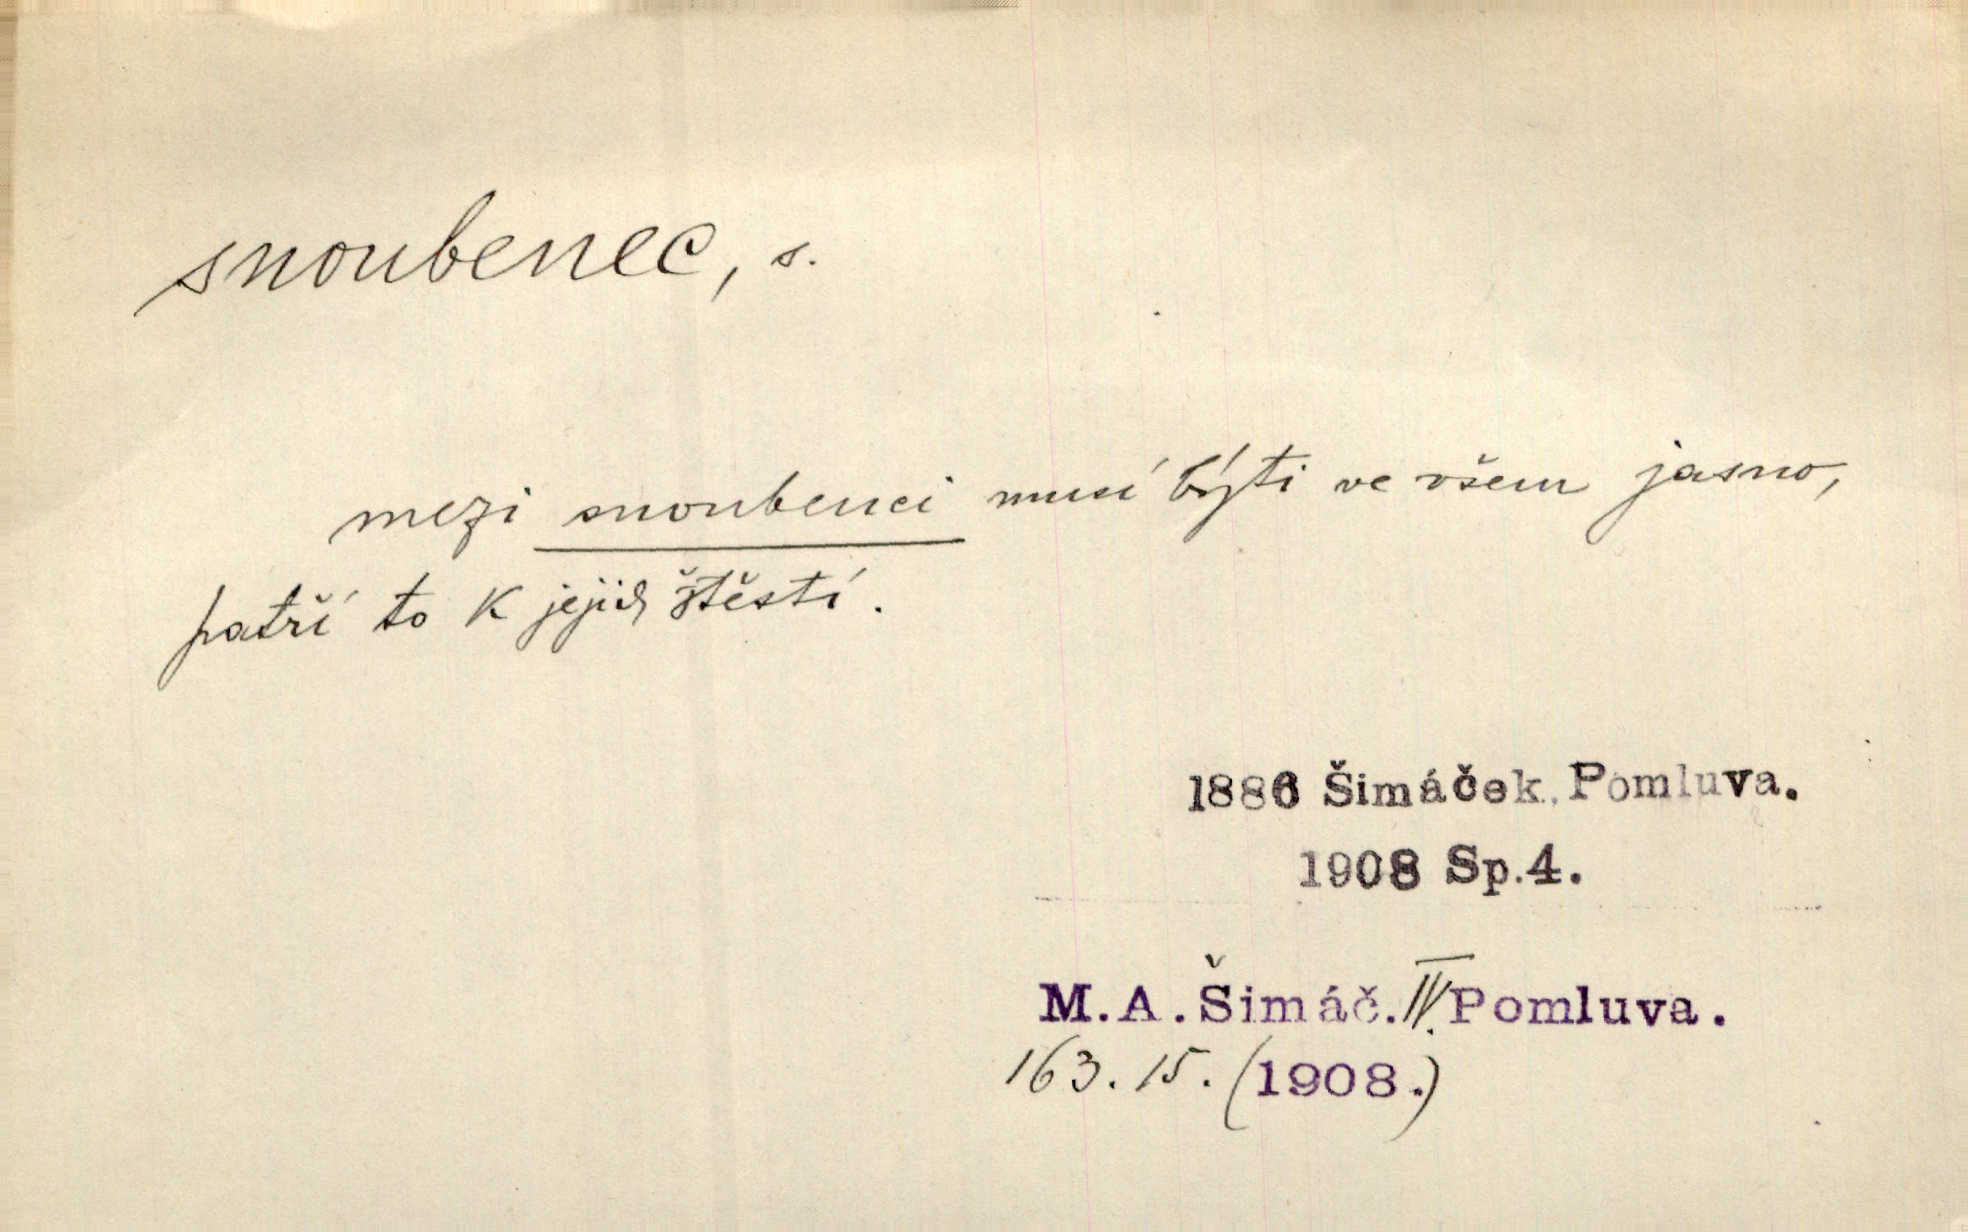 snoubenec, s.
mezi snoubenci musí býti ve všem jasno,
patří to k jejich štěstí.
1886 Šimáček, Pomluva.
1908 Sp.4.
M.A.Šimáč.IV.Pomluva.
163.15.(1908.)